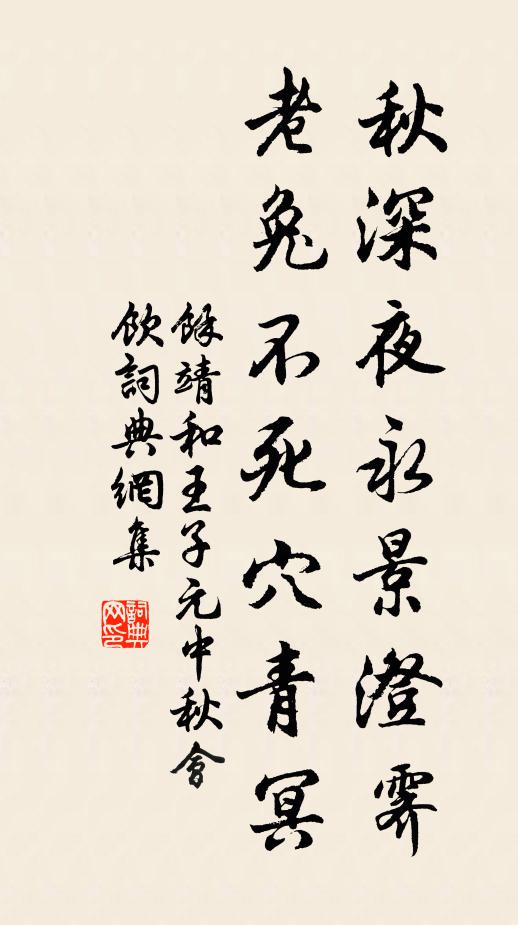 秋深夜永景澄霽
老兔不死穴青冥
餘靖和王子元中秋會
飲詞典網集
詞典
网印